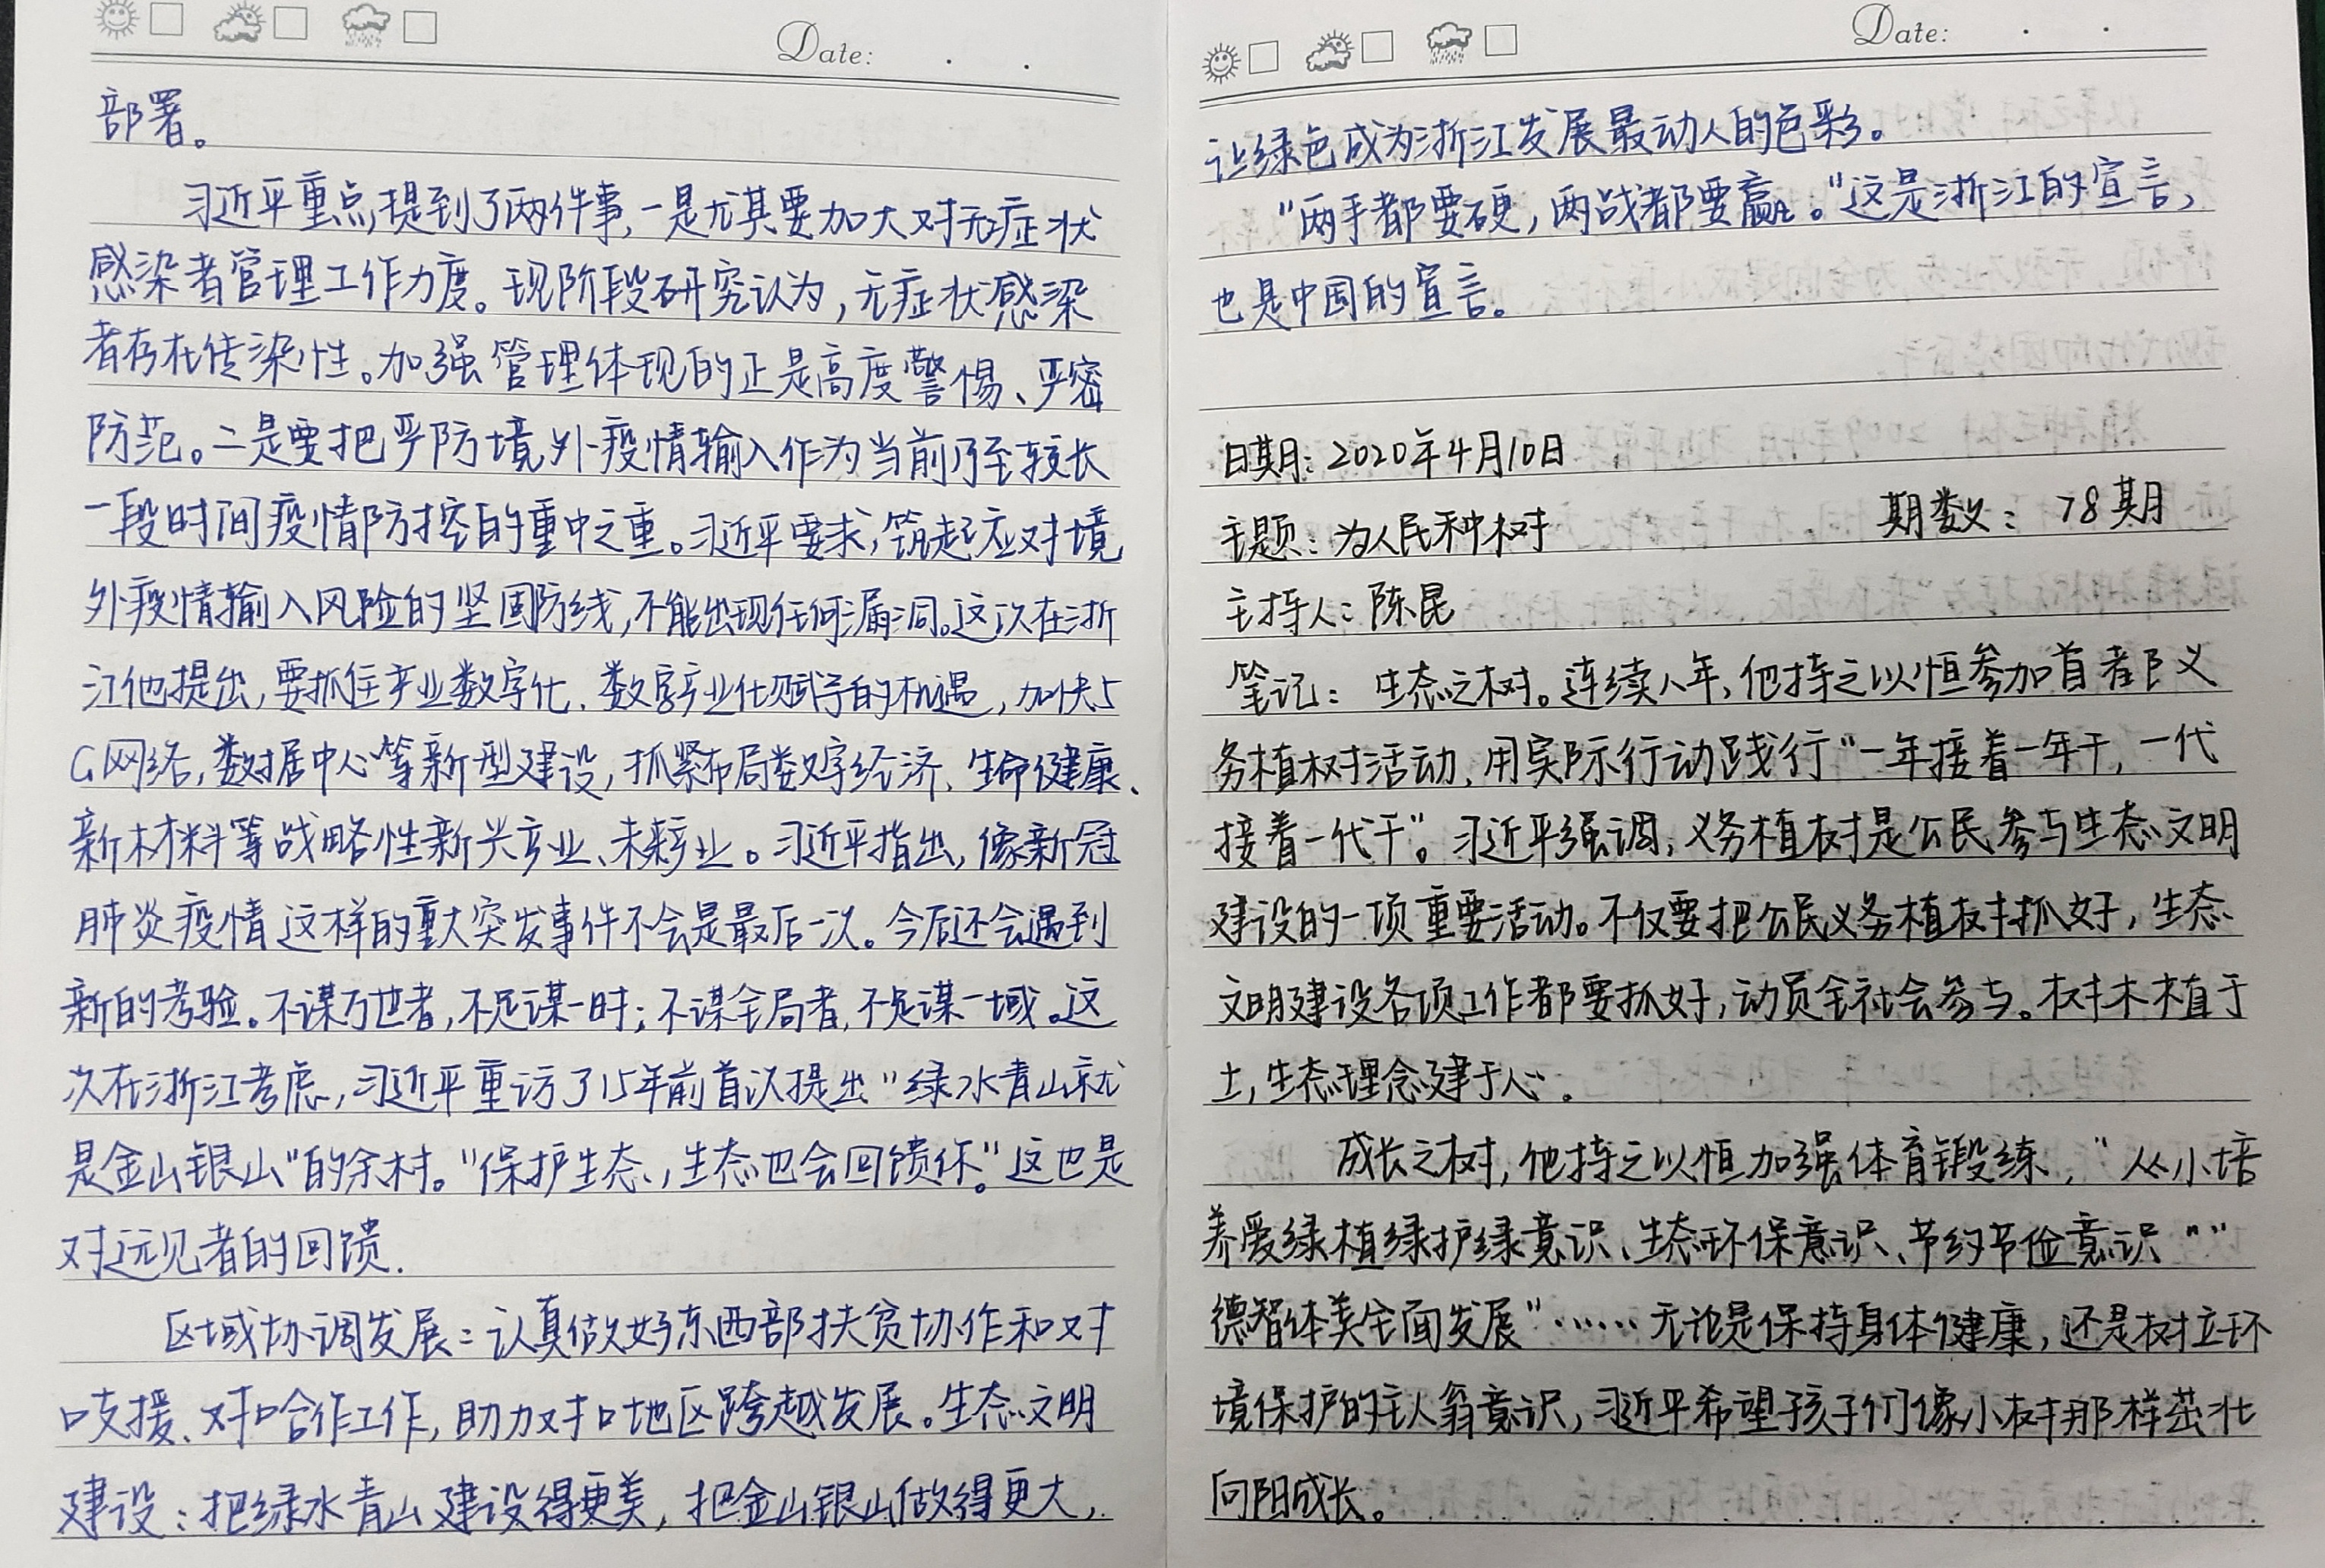 Date: . .
部署。
习近平重点提到了两件事，一是尤其要加大对无症状
感染者管理工作力度。现阶段研究认为，无症状感染
者存在传染性。加强管理体现的正是高度警惕、严密
防范。二是要把严防境外疫情输入作为当前乃至较长
一段时间疫情防控的重中之重。习近平要求，筑起应对境
外疫情输入风险的坚固防线，不能出现任何漏洞。这次在浙
江他提出，要抓住产业数字化、数字产业化赋予的机遇，加快5
G网络，数据中心等新型建设，抓紧布局数字经济、生命健康、
新材料等战略性新兴产业、未来产业。习近平指出，像新冠
肺炎疫情这样的重大突发事件不会是最后一次。今后还会遇到
新的考验。不谋万世者，不足谋一时；不谋全局者，不足谋一域。这
次在浙江考虑，习近平重访了15年前首次提出“绿水青山就
是金山银山”的余村。“保护生态，生态也会回馈你。”这也是
对远见者的回馈.
区域协调发展：认真做好东西部扶贫协作和对
口支援、对口合作工作，助力对口地区跨越发展。生态文明
建设：把绿水青山建设得更美，把金山银山做得更大，
Date: . .
让绿色成为浙江发展最动人的色彩。
“两手都要硬，两战都要赢。”这是浙江的宣言，
也是中国的宣言。
日期：2020年4月10日
主题：为人民种树 期数：78期
主持人：陈昆
笔记：生态之树。连续八年，他持之以恒参加首都义
务植树活动，用实际行动践行“一年接着一年干，一代
接着一代干”。习近平强调，义务植树是公民参与生态文明
建设的一项重要活动。不仅要把公民义务植树抓好，生态
文明建设各项工作都要抓好，动员全社会参与。树木植于
土，生态理念建于心。
成长之树，他持之以恒加强体育锻练，“从小培
养爱绿植绿护绿意识、生态环保意识、节约节俭意识”“
德智体美全面发展”……无论是保持身体健康，还是树立环
境保护的主人翁意识，习近平希望孩子们像小树那样茁壮
向阳成长。